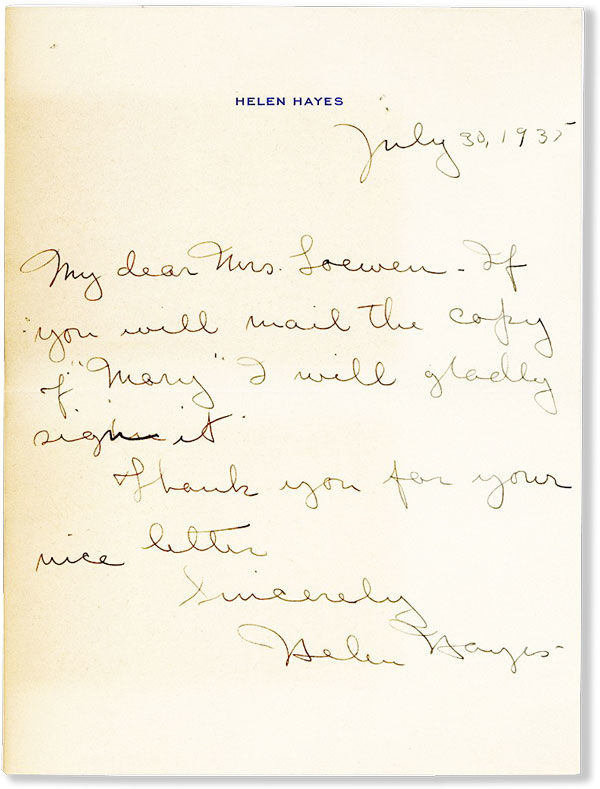 HELEN HAYES
July 30, 1935
My dear Mrs. Loewen - If
you will mail the copy
of "Mary" I will gladly
sign it
Thank you for your
nice letter
Sincerely
Helen Hayes